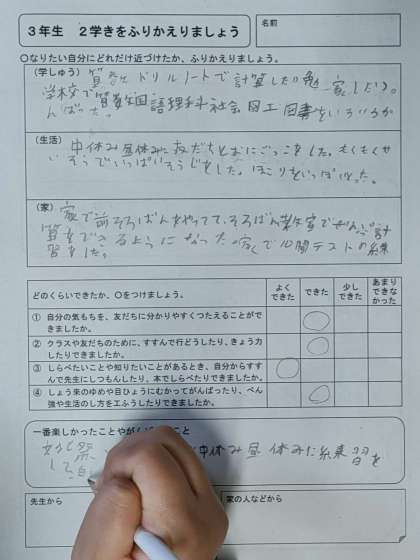 3年生 2学きをふりかえりましょう
名前
○なりたい自分にどれだけ近づけたか、ふりかえりましょう。
(学しゅう) 算数 ドリルノートで計算したり勉
学校で算数国語理科社会図工図書をいろいろが
んばった。
(生活) 中休み昼休みに友だちとおにごっこをした。もくもくせ
いそうでいっぱいそうじをした。ほこりもいっぱいだった。
(家) 家で前そろばんをやってて、そろばん
算をできるようになった。家で10問テストの練
習をした。
どのくらいできたか、○をつけましょう。
よくできた
できた
少しできた
あまりできなかった
① 自分の気もちを、友だちに分かりやすくつたえることができましたか。
② クラスや友だちのために、すすんで行どうしたり、きょう力したりできましたか。
③ しらべたいことや知りたいことがあるとき、自分からすすんで先生にしつもんしたり、本でしらべたりできましたか。
④ しょう来のゆめや目ひょうにむかってがんばったり、べん強や生活のし方を工ふうしたりできましたか。
一番楽しかったことやが こと
中休み昼休みに練習を
して
先生から
家の人などから